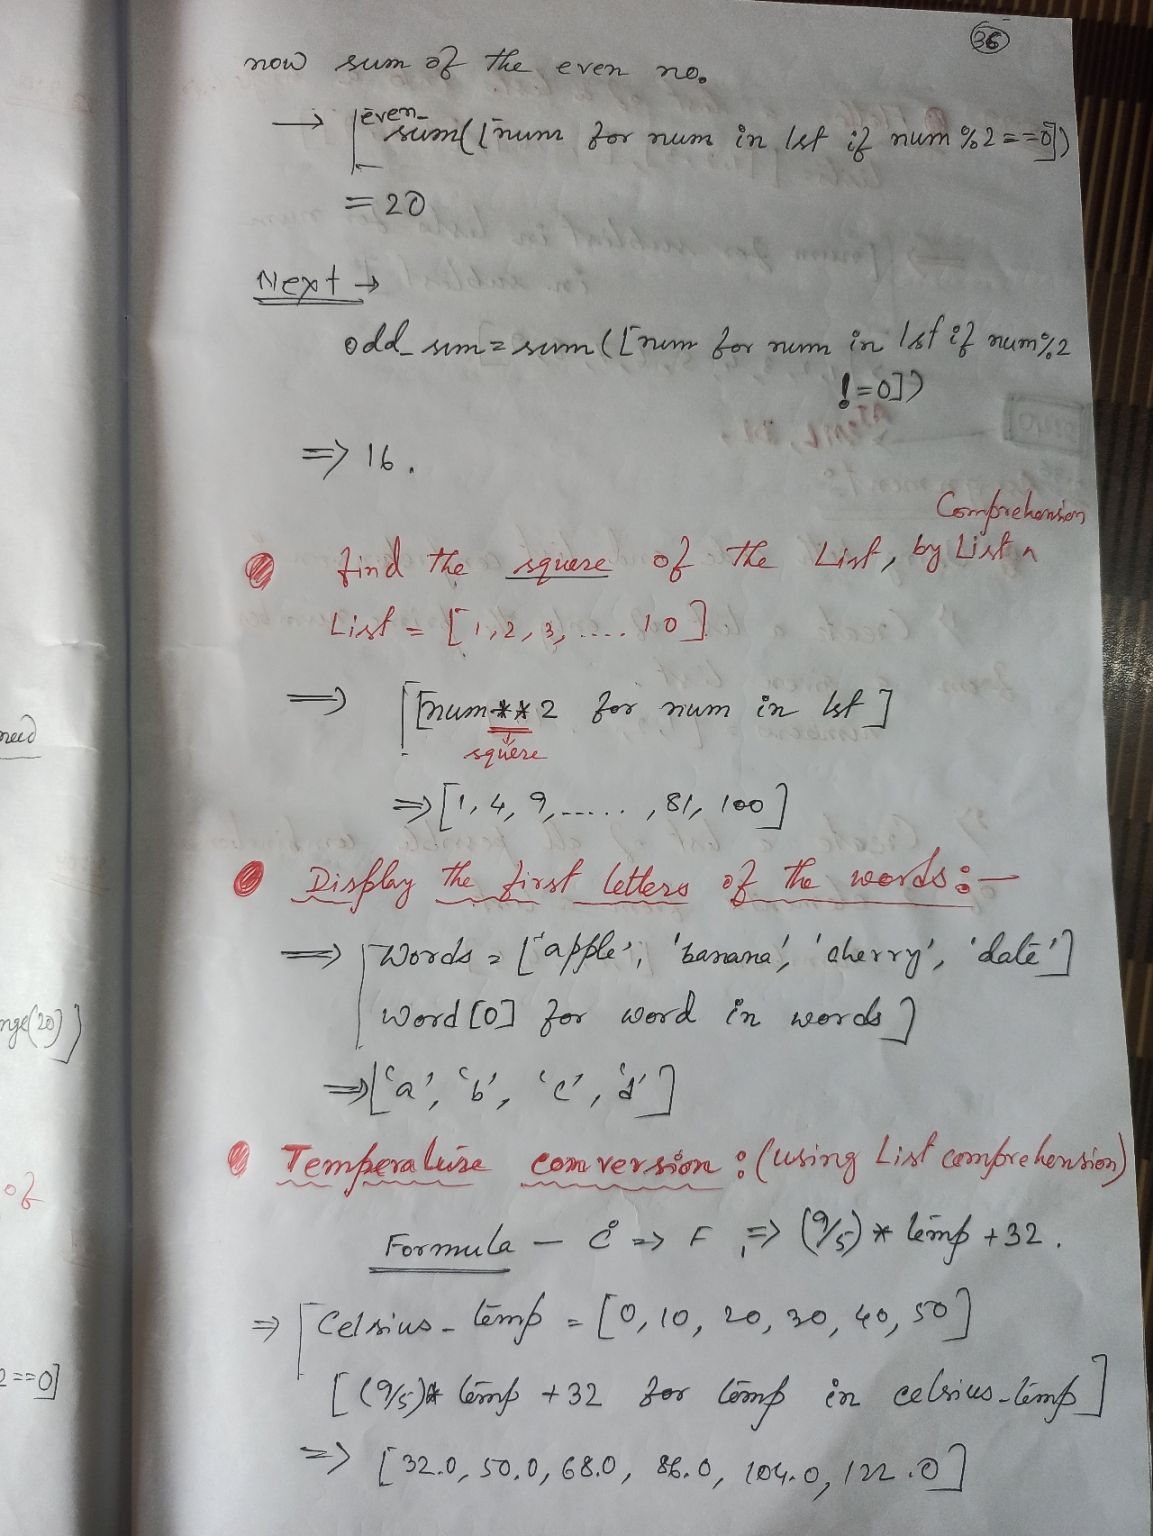 36
now sum of the even no.
→ even_
sum([num for num in lst if num %2==0])
= 20
Next →
odd_sum = sum([num for num in lst if num%2
!=0])
=> 16.
Comprehension
find the square of the List, by List ^
List = [1,2,3, .... 10]
=> [num**2 for num in lst]
square
=> [1, 4, 9, ..... , 81, 100]
Display the first letters of the words :-
=> Words = ['apple', 'banana', 'cherry', 'date']
word[0] for word in words]
=> ['a', 'b', 'c', 'd']
Temperature conversion : (using List comprehension)
Formula - C° => F => (9/5) * temp +32.
=> Celsius_temp = [0, 10, 20, 30, 40, 50]
[(9/5)* temp +32 for temp in celsius_temp]
=> [32.0, 50.0, 68.0, 86.0, 104.0, 122.0]
need
nge(20)]
of
2==0]